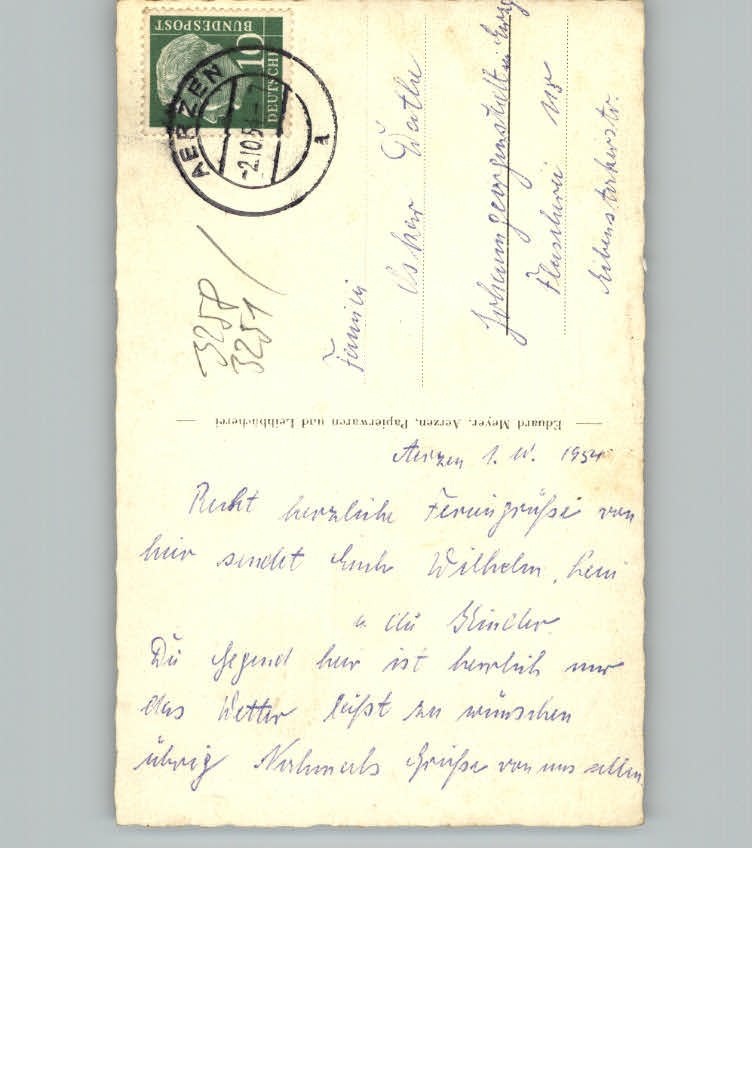 BUNDESPOST
10
DEUTSCHE
AERZEN
-2.10.5
A
3258
3251
Familie
Oskar
Johanngeorgenstadt
Eibenstockerstr.
Eduard Meyer, Aerzen, Papierwaren und Leihbücherei
Aerzen 1. 10. 1954
Recht herzliche Feriengrüße von
hier sendet Euch Wilhelm, Leni
u. die Kinder.
Die Gegend hier ist herrlich nur
das Wetter läßt zu wünschen
übrig Nochmals Grüße von uns allen.